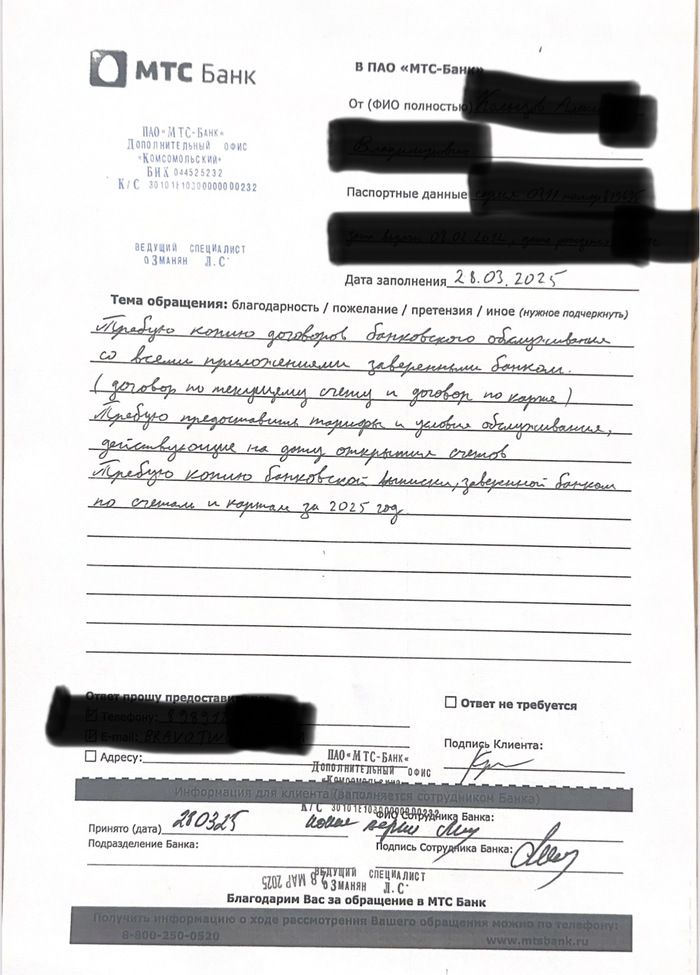 МТС Банк
В ПАО «МТС-Банк»
От (ФИО полностью)
ПАО «МТС-Банк»
Дополнительный офис
«Комсомольский»
БИК 044525232
К/С
Паспортные данные
ВЕДУЩИЙ СПЕЦИАЛИСТ
ОЗМАНЯН Л.С
Дата заполнения 28.03.2025
Тема обращения: благодарность / пожелание / претензия / иное (нужное подчеркнуть)
Требую копию договоров банковского обслуживания
со всеми приложениями заверенными банком.
(договор по текущему счету и договор по карте)
Требую предоставить тарифы и условия обслуживания,
действующие на дату открытия счетов
Требую копию банковской выписки, заверенной банком
по счетам и картам за 2025 год
Ответ прошу предоставить
Ответ не требуется
Телефону:
E-mail:
Адресу:
Подпись Клиента:
ПАО «МТС-Банк»
Дополнительный офис
Информация для клиента (заполняется сотрудником Банка)
ФИО Сотрудника Банка:
Принято (дата) 280325
Подразделение Банка:
Подпись Сотрудника Банка:
28 МАР 2025
ВЕДУЩИЙ СПЕЦИАЛИСТ
ОЗМАНЯН Л.С
Благодарим Вас за обращение в МТС Банк
Получить информацию о ходе рассмотрения Вашего обращения можно по телефону:
8-800-250-0520
www.mtsbank.ru